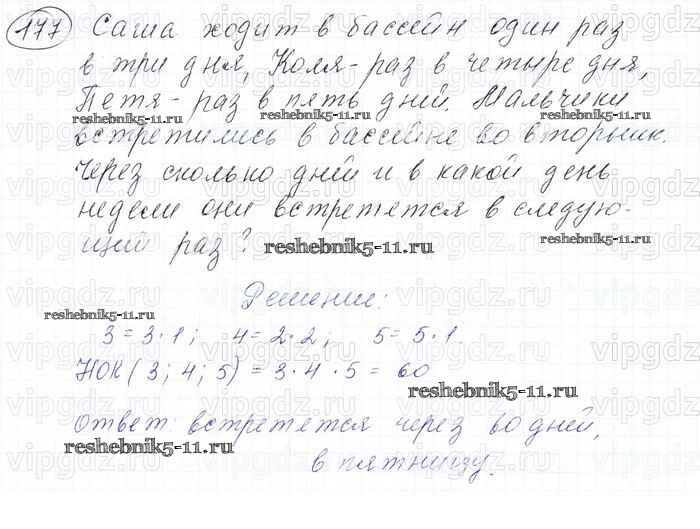 177 Саша ходит в бассейн один раз
в три дня, Коля - раз в четыре дня,
Петя - раз в пять дней. Мальчики
reshebnik5-11.ru reshebnik5-11.ru
встретились в бассейне во вторник.
Через сколько дней и в какой день
недели они встретятся в следую-
щий раз?
reshebnik5-11.ru reshebnik5-11.ru
Решение:
reshebnik5-11.ru
3 = 3 · 1; 4 = 2 · 2; 5 = 5 · 1
НОК (3; 4; 5) = 3 · 4 · 5 = 60
reshebnik5-11.ru
Ответ: встретятся через 60 дней,
reshebnik5-11.ru
в пятницу.
vipgdz.ru